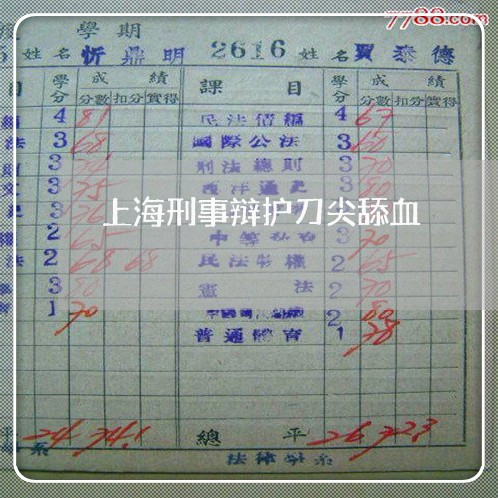 7788.com
度 學期
5 姓名 忻鼎明 2616 姓名 賈泰德
目 學分 成績 課目 學分 成績
分數 扣分 實得 分數 扣分 實得
編 4 81 民法債編 4 67
法 3 68 國際公法 3 60
則 3 刑法總則 3 70
文 3 75 西洋通史 3 80
史 3 76
上海刑事辩护刀尖舔血
2 65 中等私 3 70
權 2 68 68 民法物權 2 65
法 3 80 憲法 2 70
育 1 70 中國 2 80
普通體育 1 78
平 24 74.1 總平 26 72.3
系 法律學系